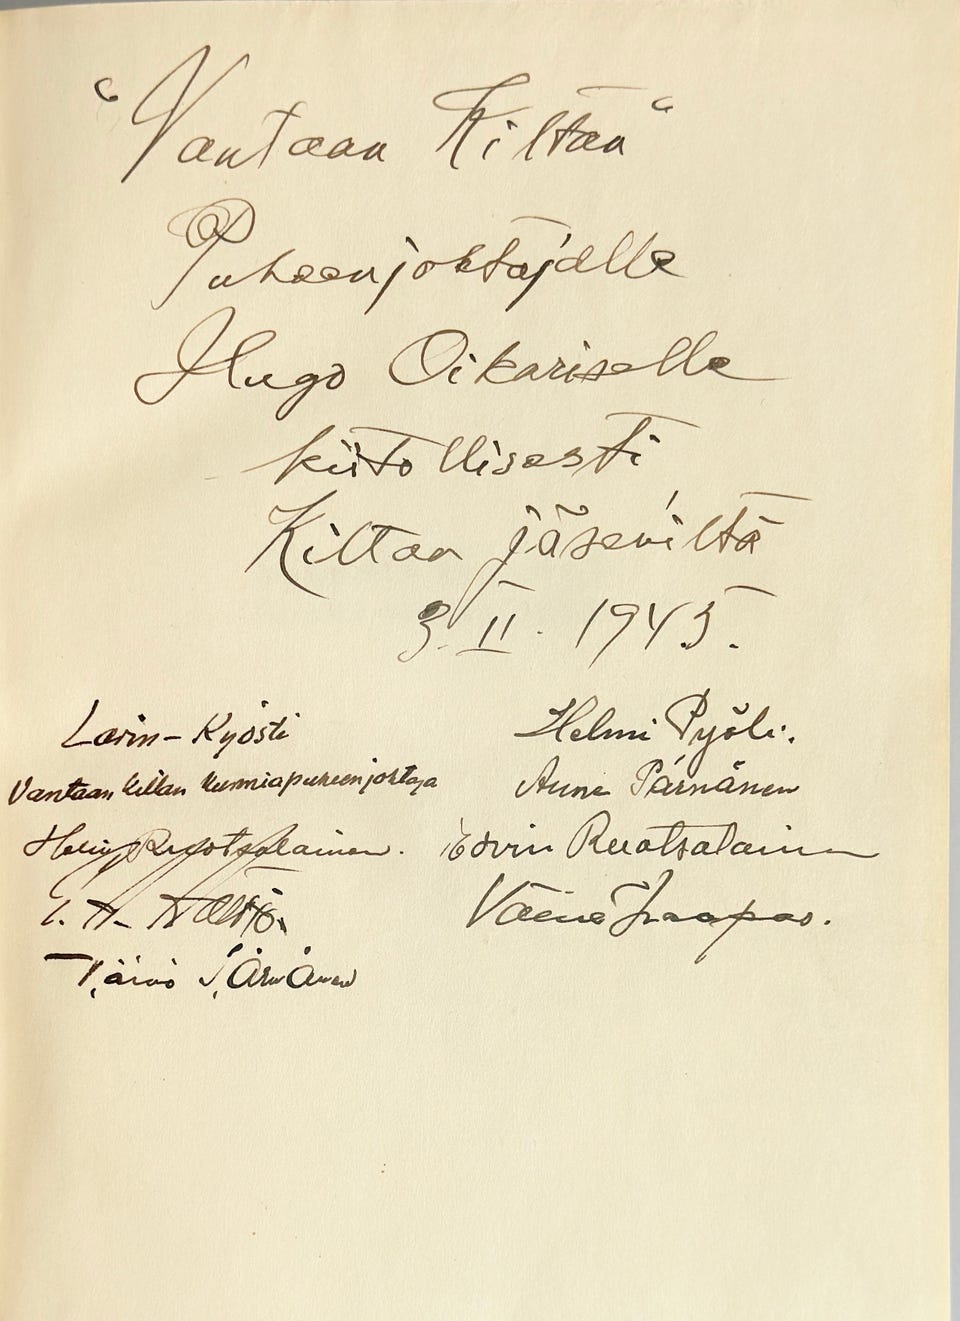 "Vantaan Kiltan"
Puheenjohtajalle
Hugo Oikariselle
kiitollisesti
Kiltan jäseniltä
3. II. 1945.
Larin-Kyösti
Vantaan Killan kunniapuheenjohtaja
Ruotsalainen.
Helmi Pyöli.
Anne Pärnänen
Edvin Ruotsalainen
Väinö